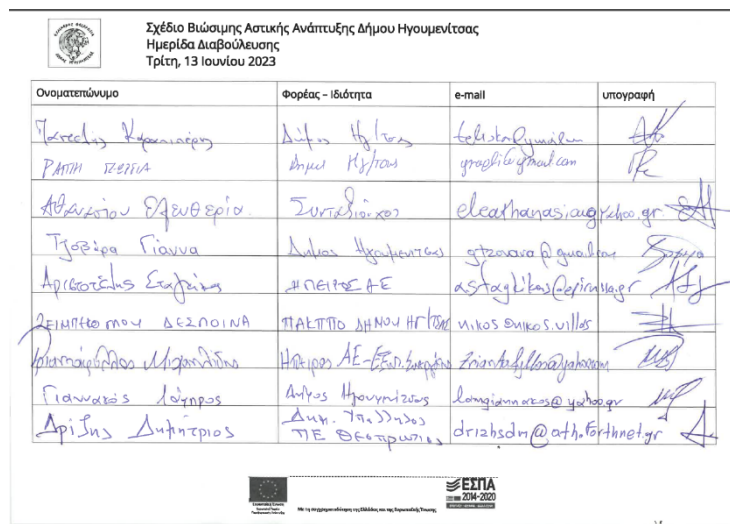 Σχέδιο Βιώσιμης Αστικής Ανάπτυξης Δήμου Ηγουμενίτσας
Ημερίδα Διαβούλευσης
Τρίτη, 13 Ιουνίου 2023
Ονοματεπώνυμο Φορέας – Ιδιότητα e-mail υπογραφή
Δήμος Ηγ/τσας
ΡΑΠΤΗ ΓΕΩΡΓΙΑ Δήμος Ηγ/τσας
Αθανασίου Ελευθερία Συνταξιούχος eleathanasiou@yahoo.gr
Τζοβάρα Γιάννα Δήμος Ηγουμενίτσας gtzovara@gmail.com
Αριστοτέλης Σταγκίκας ΗΠΕΙΡΟΣ ΑΕ
ΔΕΣΠΟΙΝΑ ΔΗΜΟΥ ΗΓ/ΤΣΑΣ
Τριαντάφυλλος Μιχαηλίδης Ήπειρος ΑΕ
Γιαννακός Λάμπρος Δήμος Ηγουμενίτσας lamgiannakos@yahoo.gr
Δρίζης Δημήτριος Δημ. Υπάλληλος ΠΕ Θεσπρωτίας drizhsdm@oth.forthnet.gr
Με τη συγχρηματοδότηση της Ελλάδας και της Ευρωπαϊκής Ένωσης
ΕΣΠΑ
2014-2020